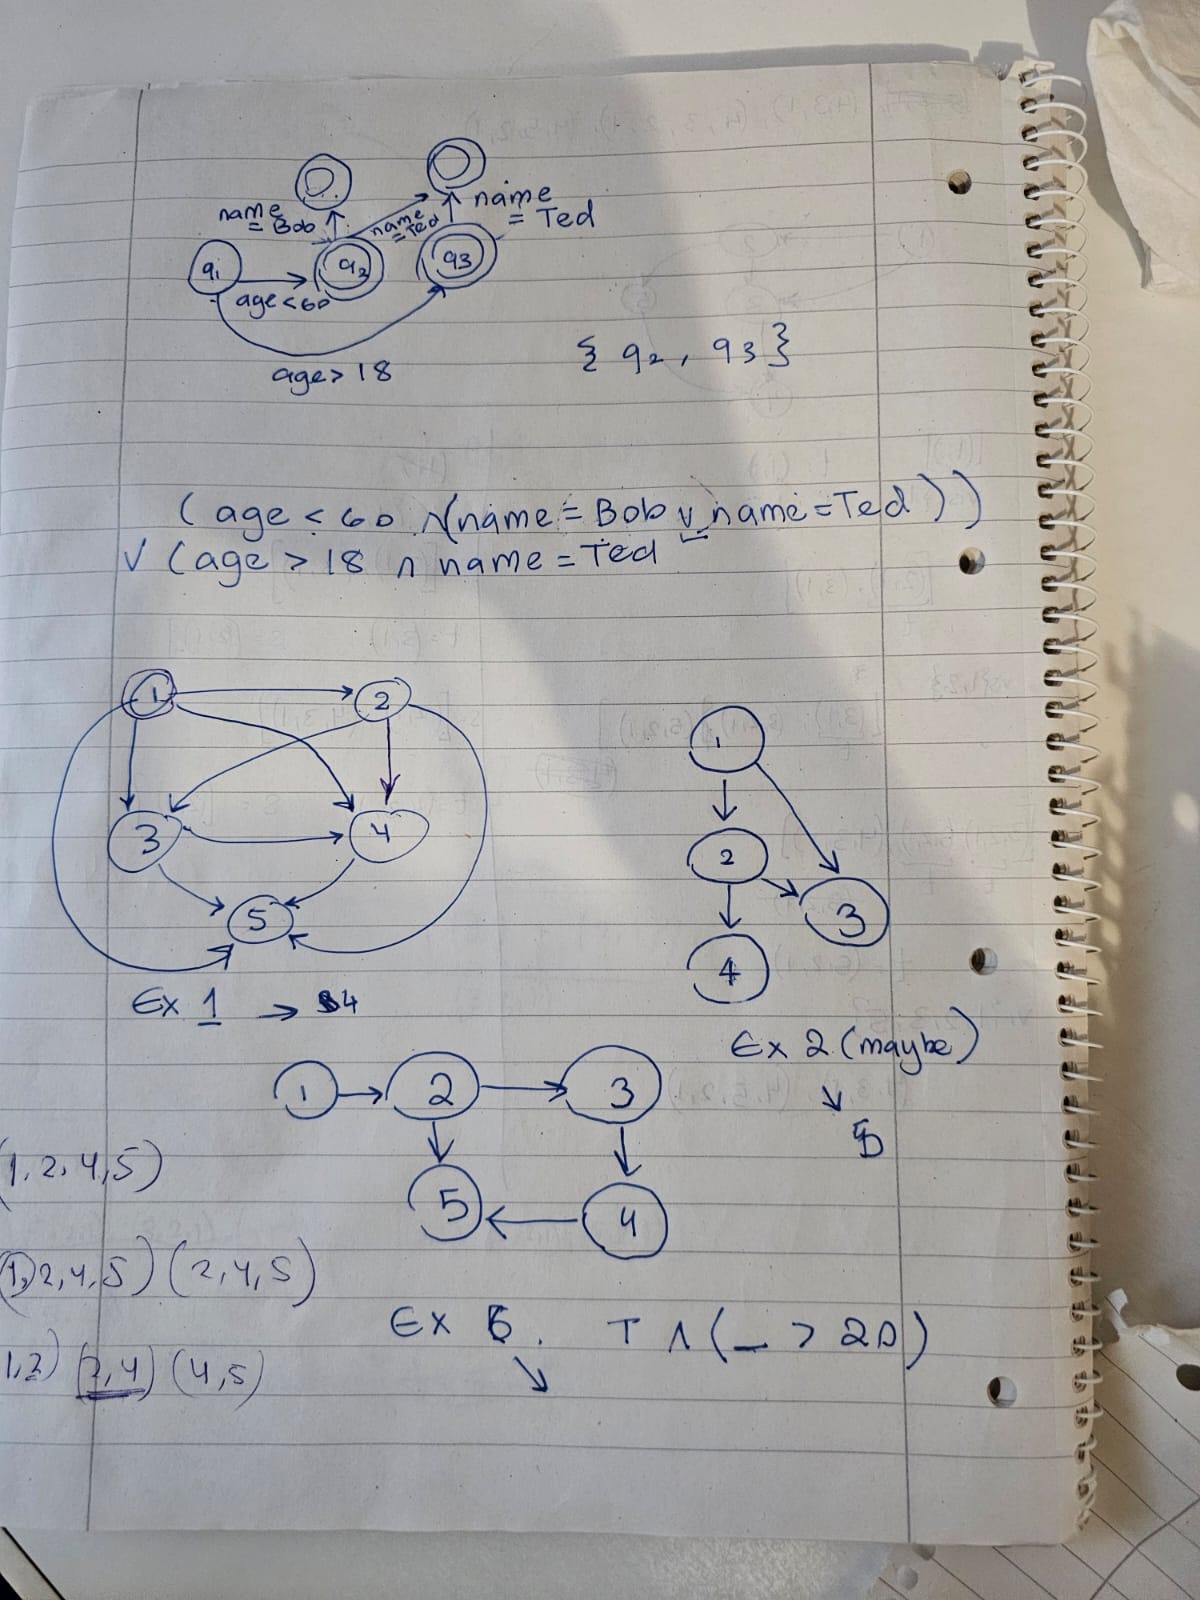 name
= Bob
name
= Ted
name
= Ted
q1
q2
q3
age < 60
age > 18
{ q2, q3 }
( age < 60 ∧ (name = Bob ∨ name = Ted ) )
∨ ( age > 18 ∧ name = Ted
1
2
3
4
5
Ex 1 → 4
1
2
3
4
Ex 2 (maybe)
↓
1
2
3
5
4
(1, 2, 4, 5)
(1, 2, 4, 5) (2, 4, 5)
1, 2) (2, 4) (4, 5)
Ex
T ∧ ( _ > 20 )